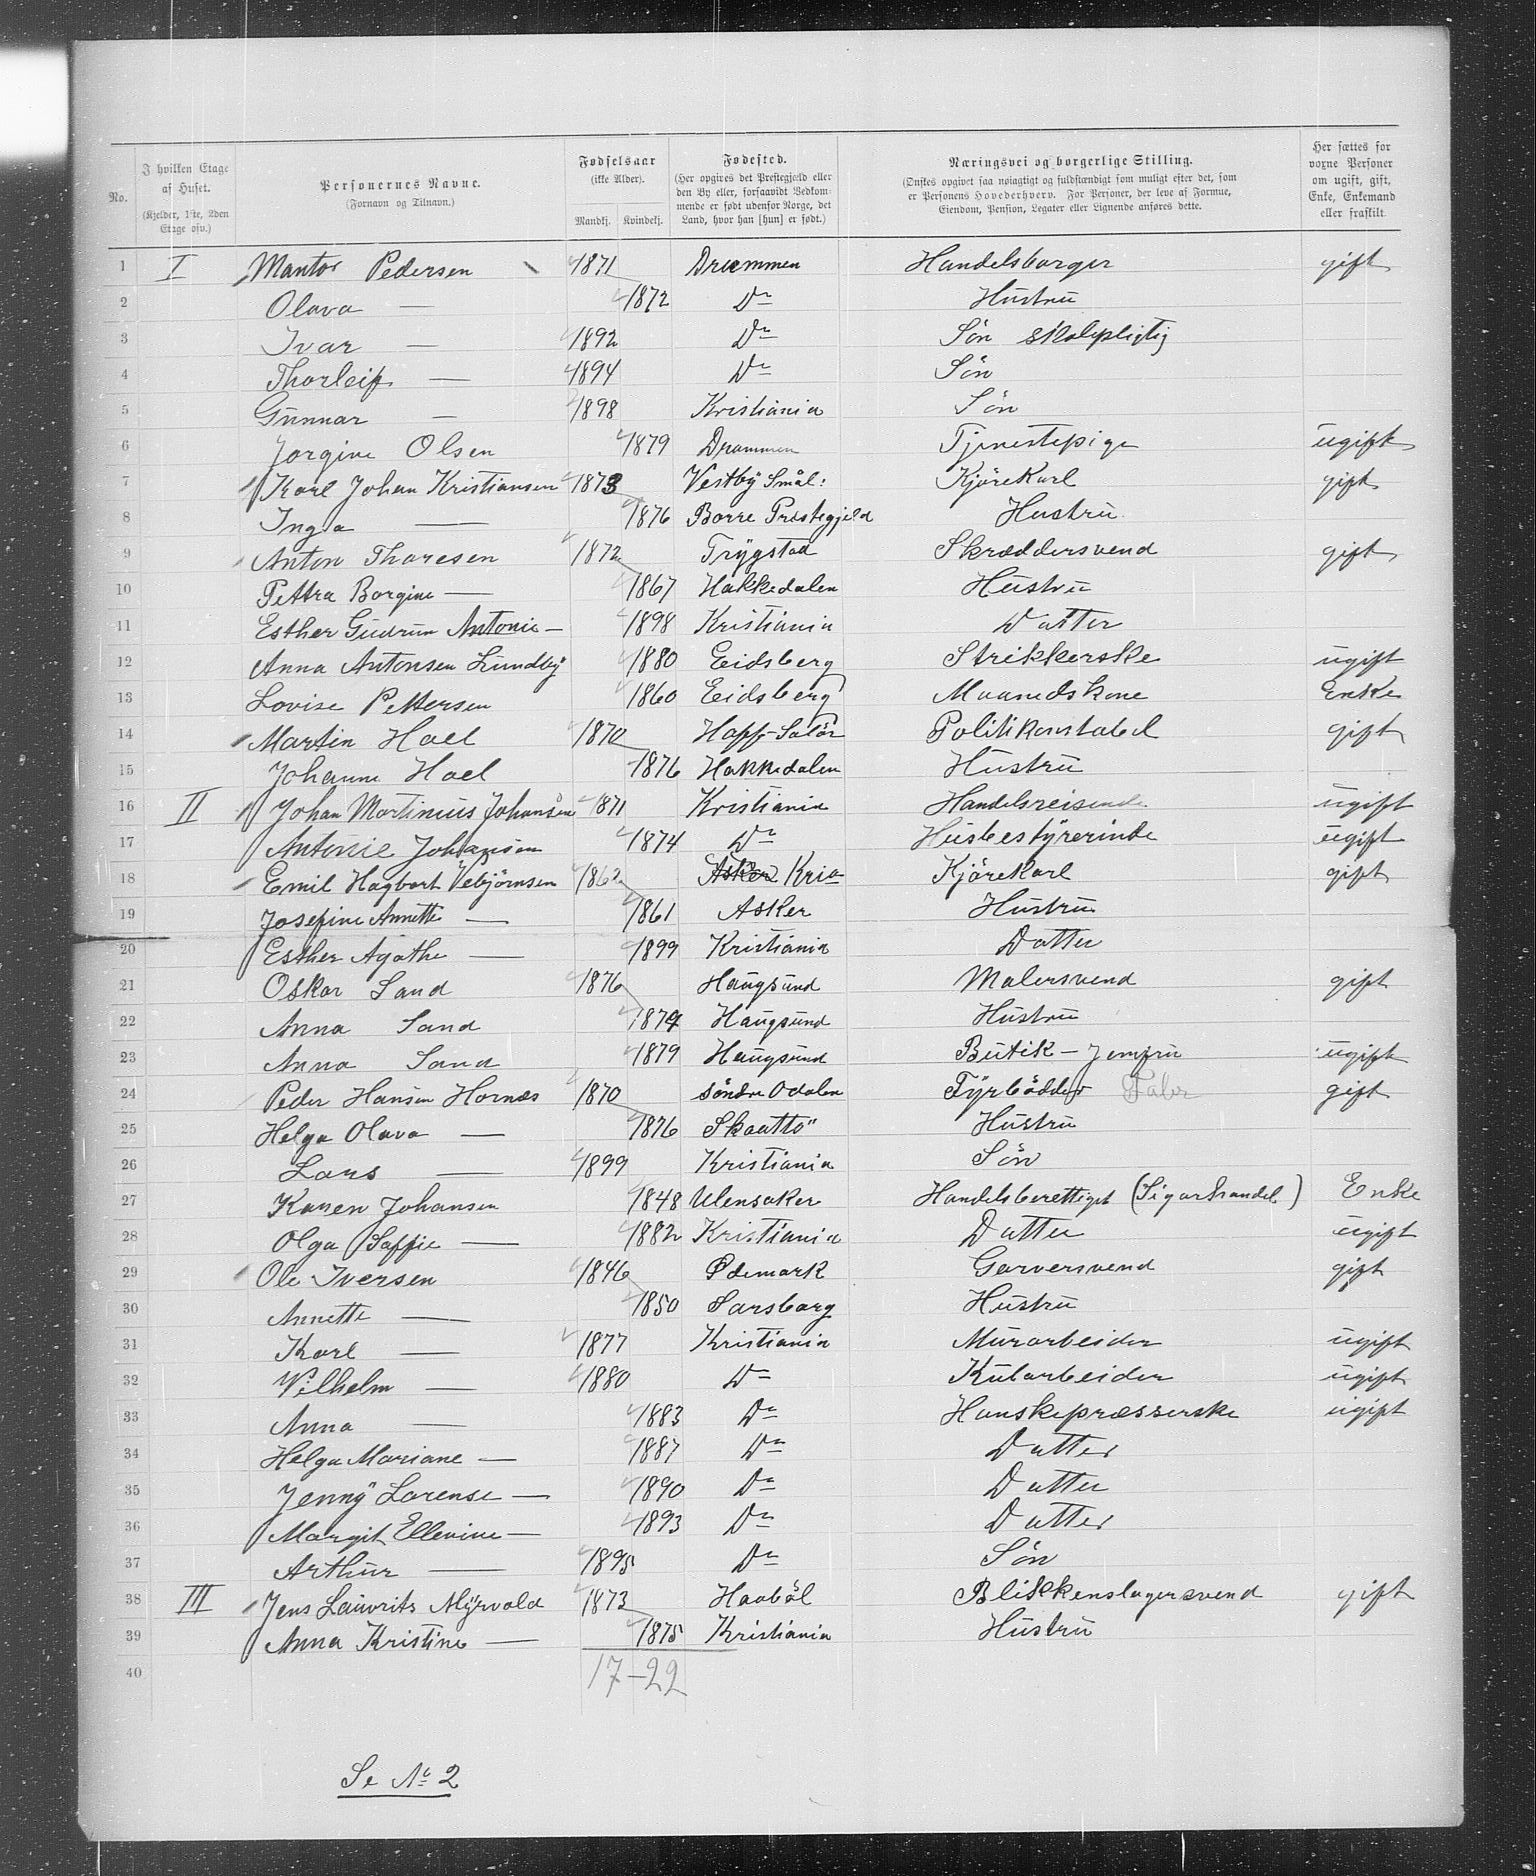 No.
I hvilken Etage af Huset. (Kjelder, 1ste, 2den Etage osv.)
Personernes Navne. (Fornavn og Tilnavn.)
Fødselsaar (ikke Alder). Mandkj. Kvindekj.
Fødested. (Her opgives det Prestegjæld eller den By eller, forsaavidt Vedkommende er født udenfor Norge, det Land, hvor han [hun] er født.)
Næringsvei og borgerlige Stilling. (Ønskes opgivet saa nøiagtigt og fuldstændigt som muligt efter det, som er Personens Hovederhverv. For Personer, der leve af Formue, Eiendom, Pension, Legater eller Lignende anføres dette.
Her sættes for voxne Personer om ugift, gift, Enke, Enkemand eller fraskilt.
1 I Mantor Pedersen 1871 Drammen Handelsborger gift
2 Olava — 1872 Do Hustru
3 Ivar — 1892 Do Søn skolepligtig
4 Thorleif — 1894 Do Søn
5 Gunnar — 1898 Kristiania Søn
6 Jorgine Olsen 1879 Drammen Tjenestepige ugift
7 Karl Johan Kristiansen 1873 Vestby Smål: Kjørekarl gift
8 Inga — 1876 Borre Prestegjeld Hustru
9 Anton Thoresen 1872 Trygstad Skræddersvend gift
10 Pettra Borgine — 1867 Hakkedalen Hustru
11 Esther Gudrun Antonie — 1898 Kristiania Datter
12 Anna Antonsen Lundby 1880 Eidsberg Strikkerske ugift
13 Lovise Pettersen 1860 Eidsberg Maanedskone Enke
14 Martin Hoel 1870 Hoff-Solør Politikonstabel gift
15 Johanne Hoel 1876 Hakkedalen Hustru
16 II Johan Martinius Johansen 1871 Kristiania Handelsreisende ugift
17 Antonie Johansen 1874 Do Husbestyrerinde ugift
18 Emil Hagbart Vebjørnsen 1862 Asker Kria Kjørekarl gift
19 Josefine Annette — 1861 Asker Hustru
20 Esther Agathe — 1899 Kristiania Datter
21 Oskar Sand 1876 Haugsund Malersvend gift
22 Anna Sand 1879 Haugsund Hustru
23 Anna Sand 1879 Haugsund Butik-Jomfru ugift
24 Peder Hansen Hornæs 1870 søndre Odalen Fyrbødder gift
25 Helga Olava — 1876 Skaattø Hustru
26 Lars — 1899 Kristiania Søn
27 Karen Johansen 1848 Ulensaker Handelsberettiget (Sigarhandel) Enke
28 Olga Saffie — 1882 Kristiania Datter ugift
29 Ole Iversen 1846 Ødemark Garversvend gift
30 Annette — 1850 Sarsborg Hustru
31 Karl — 1877 Kristiania Murarbeider ugift
32 Vilhelm — 1880 Do Kularbeider ugift
33 Anna — 1883 Do Hanskepresserske ugift
34 Helga Mariane — 1887 Do Datter
35 Jenny Lorense — 1890 Do Datter
36 Margit Ellevine — 1893 Do Datter
37 Arthur — 1895 Do Søn
38 III Jens Lauvrits Myrvold 1873 Haabøl Blikkenslagersvend gift
39 Anna Kristine — 1875 Kristiania Hustru
40 17-22
Se No 2